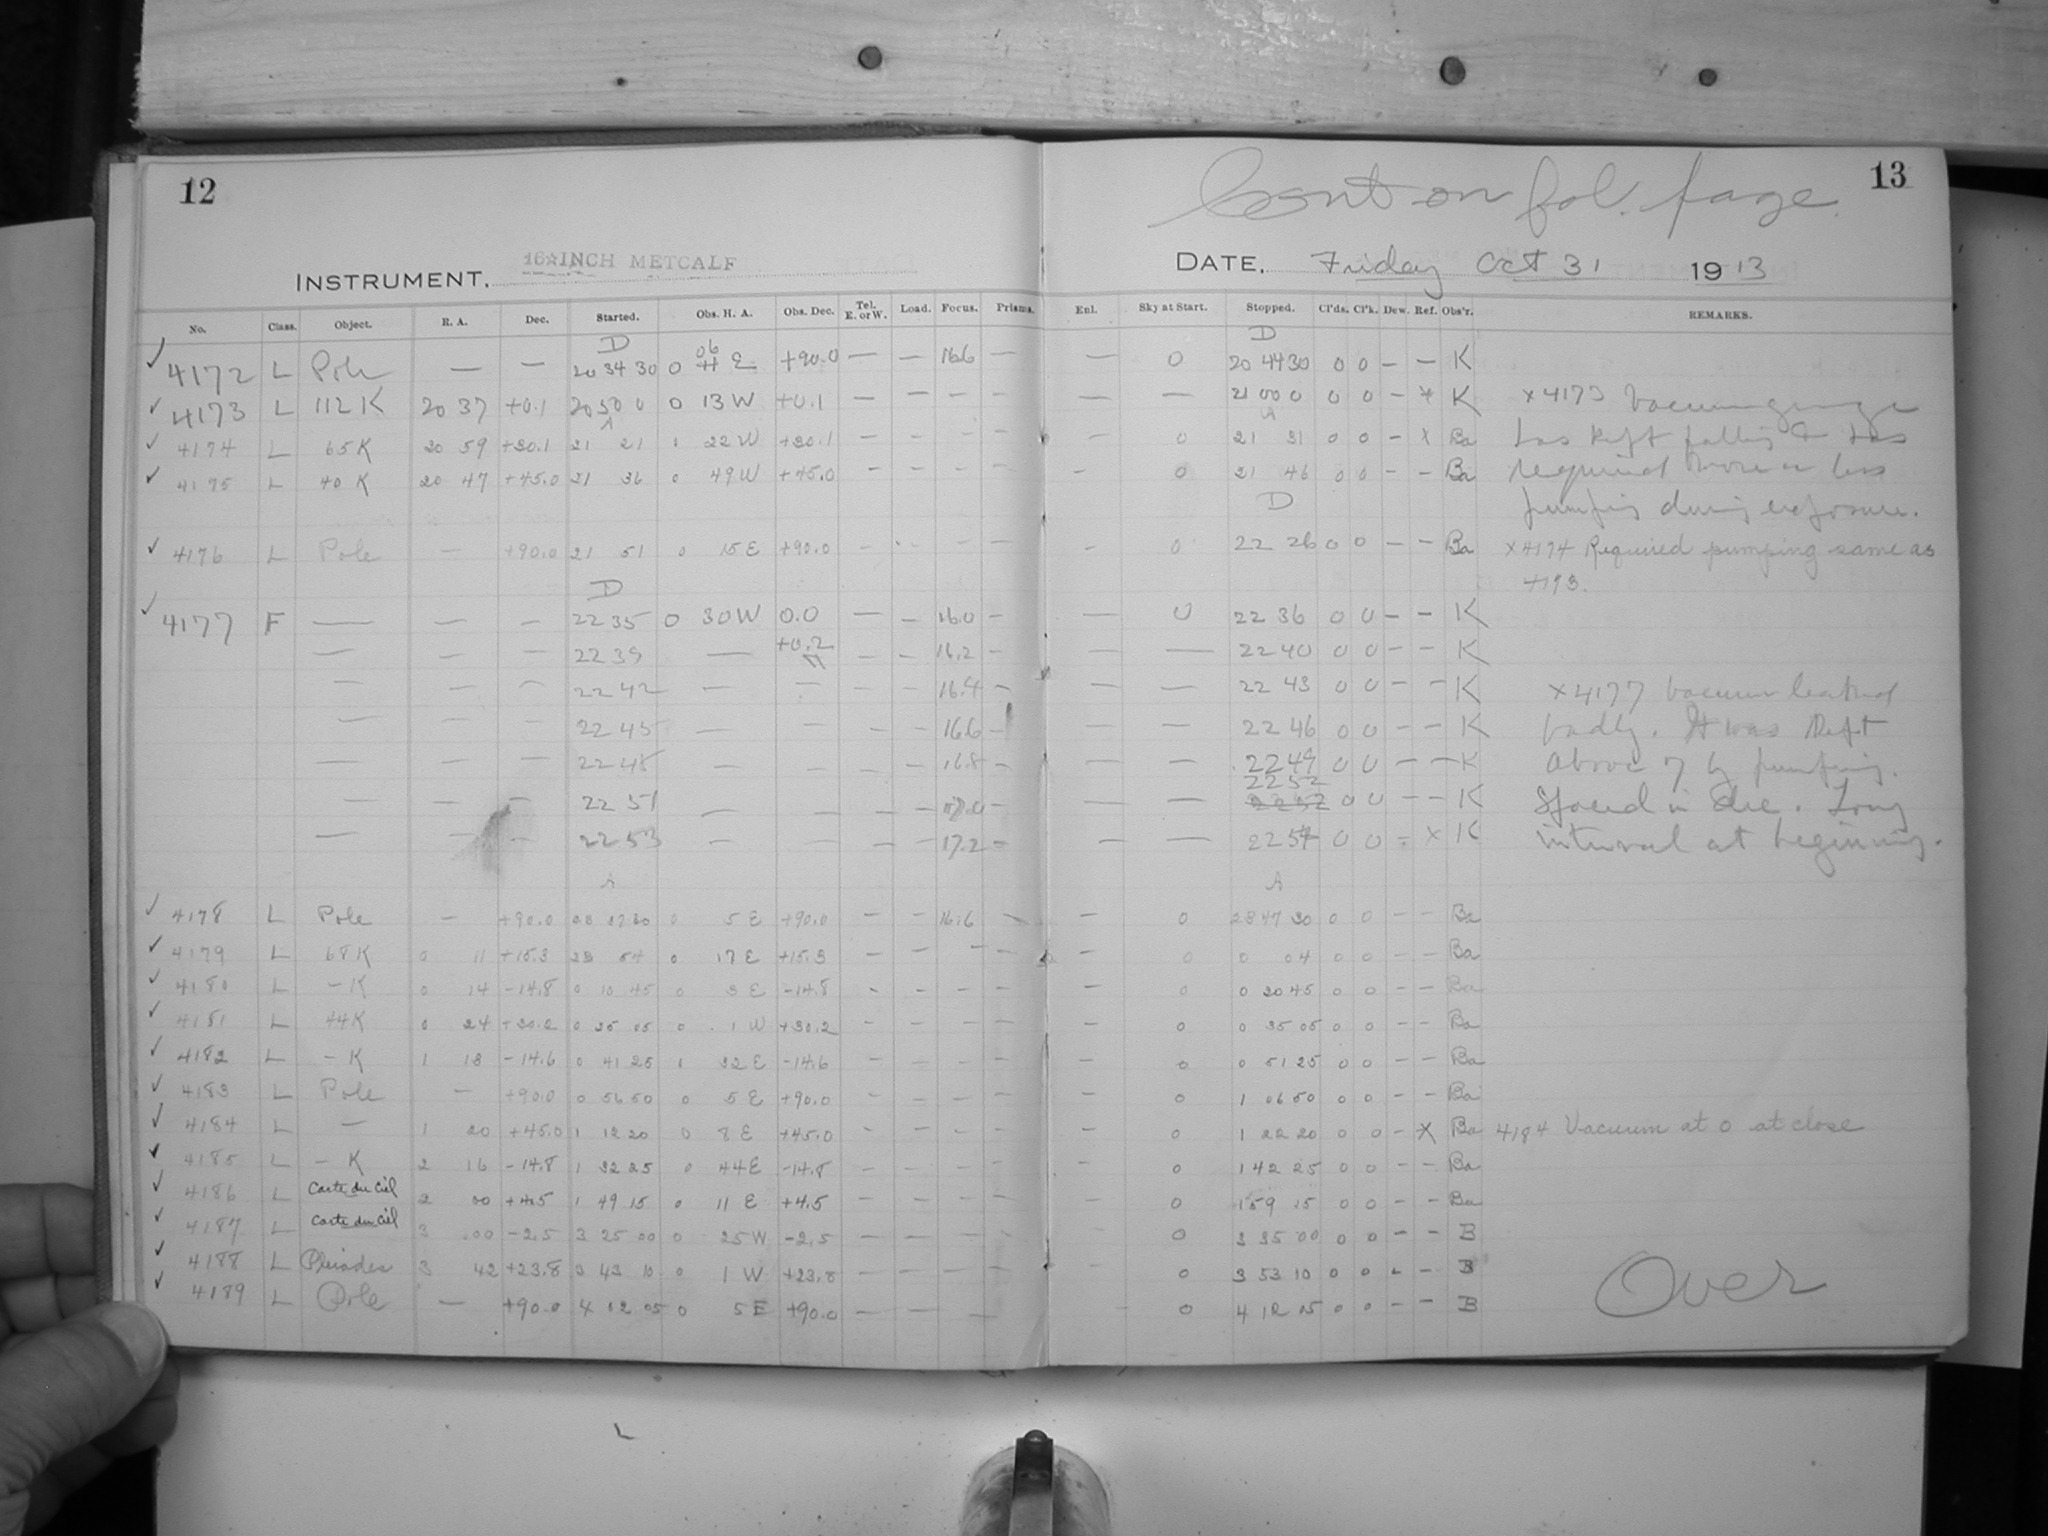 12
13
Cont on fol. page.
INSTRUMENT. 16 INCH METCALF
DATE. Friday Oct 31 1913
No. Class. Object. R. A. Dec. Started. Obs. H. A. Obs. Dec. Tel. E. or W. Load. Focus. Prisms. Enl. Sky at Start. Stopped. Cl'ds. Cl'k. Dew. Ref. Obs'r. REMARKS.
D D
✓ 4172 L Pole — — 20 34 30 0 06 E +90.0 — — 16.6 — — 0 20 44 30 0 0 — — K
✓ 4173 L 112 K 20 37 +0.1 20 50 0 0 13 W +0.1 — — — — — — 21 00 0 0 0 — * K × 4173 Vacuum gauge
A A
✓ 4174 L 65 K 20 59 +30.1 21 21 0 22 W +30.1 — — — — — 0 21 31 0 0 — × Ba has kept falling & has
✓ 4175 L 40 K 20 47 +45.0 21 36 0 49 W +45.0 — — — — — 0 21 46 0 0 — — Ba required more or less
D pumping during exposure.
✓ 4176 L Pole — +90.0 21 51 0 15 E +90.0 — — — — — 0 22 26 0 0 — — Ba × 4174 Required pumping same as
4173.
D
✓ 4177 F — — — 22 35 0 30 W 0.0 — — 16.0 — — 0 22 36 0 0 — — K
— — — 22 39 — +0.2 — — 16.2 — — — 22 40 0 0 — — K
— — — 22 42 — — — — 16.4 — — — 22 43 0 0 — — K × 4177 Vacuum leaked
— — — 22 45 — — — — 16.6 — — — 22 46 0 0 — — K badly. It was kept
— — — 22 48 — — — — 16.8 — — — 22 49 0 0 — — K above 7 by pumping.
— — — 22 51 — — — — 17.0 — — — 22 52 0 0 — — K Spaced in Dec. Long
— — — 22 53 — — — — 17.2 — — — 22 54 0 0 — × K interval at beginning.
A A
✓ 4178 L Pole — +90.0 23 37 30 0 5 E +90.0 — — 16.6 — — 0 23 47 30 0 0 — — Ba
✓ 4179 L 68 K 0 11 +15.3 23 54 0 17 E +15.3 — — — — — 0 0 04 0 0 — — Ba
✓ 4180 L — K 0 14 -14.8 0 10 45 0 3 E -14.8 — — — — — 0 0 20 45 0 0 — — Ba
✓ 4181 L 44 K 0 24 +30.2 0 25 05 0 1 W +30.2 — — — — — 0 0 35 05 0 0 — — Ba
✓ 4182 L — K 1 13 -14.6 0 41 25 32 E -14.6 — — — — — 0 0 51 25 0 0 — — Ba
✓ 4183 L Pole — +90.0 0 56 50 0 5 E +90.0 — — — — — 0 1 06 50 0 0 — — Ba
✓ 4184 L — 1 20 +45.0 1 12 20 0 8 E +45.0 — — — — — 0 1 22 20 0 0 — × Ba 4184 Vacuum at 0 at close
✓ 4185 L — K 2 16 -14.8 1 32 25 0 44 E -14.8 — — — — — 0 1 42 25 0 0 — — Ba
✓ 4186 L Carte du Ciel 2 00 +4.5 1 49 15 0 11 E +4.5 — — — — — 0 1 59 15 0 0 — — Ba
✓ 4187 L Carte du Ciel 3 00 -2.5 3 25 00 0 25 W -2.5 — — — — — 0 3 35 00 0 0 — — B
✓ 4188 L Pleiades 3 42 +23.8 3 43 10 0 1 W +23.8 — — — — — 0 3 53 10 0 0 — — B
✓ 4189 L Pole — +90.0 4 02 05 0 5 E +90.0 — — — — — 0 4 12 15 0 0 — — B
Over